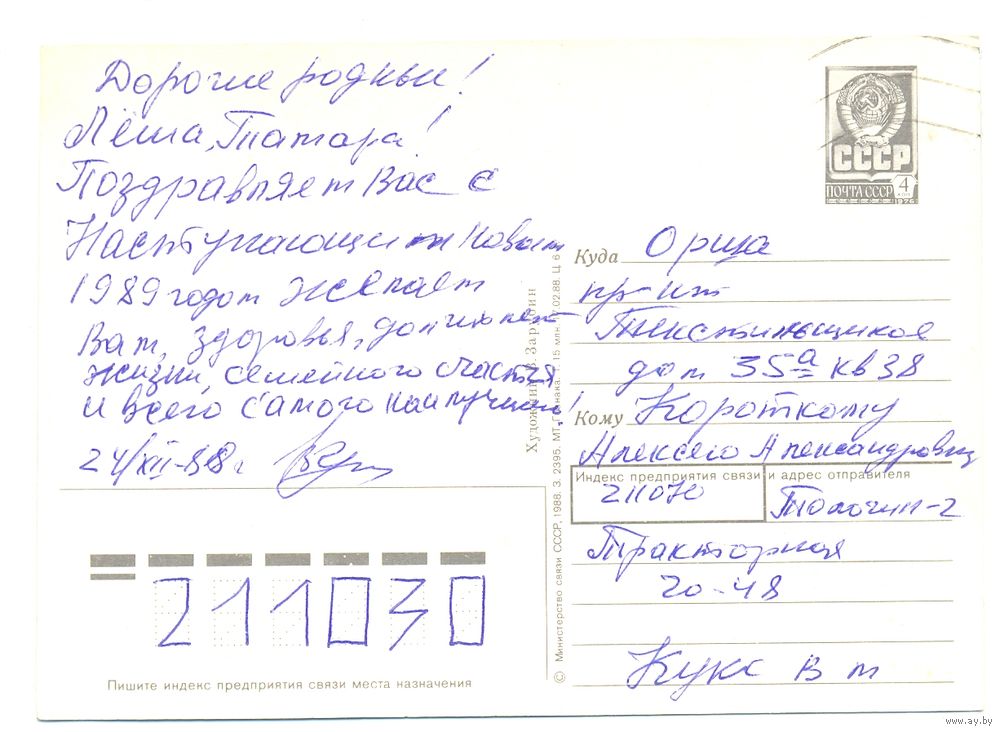 Дорогие родные!
Лёша, Тамара!
Поздравляем Вас с
Наступающим Новым
1989 годом желаем
Вам, здоровья, долгих лет
жизни, семейного счастья
и всего самого наилучшего!
24/XII-88 г
СССР
ПОЧТА СССР 4 КОП
1976
Куда Орша
пр-кт
Текстильщиков
дом 35а кв 38
Кому Короткому
Алексею Александровичу
Индекс предприятия связи и адрес отправителя
211070
Толочин-2
Тракторная
20-48
Кукс В М
211030
Пишите индекс предприятия связи места назначения
© Министерство связи СССР, 1988. З. 2395. МТ Гознака. 15 млн. 02.88. Ц 6
Художник В. Зарубин
www.ay.by